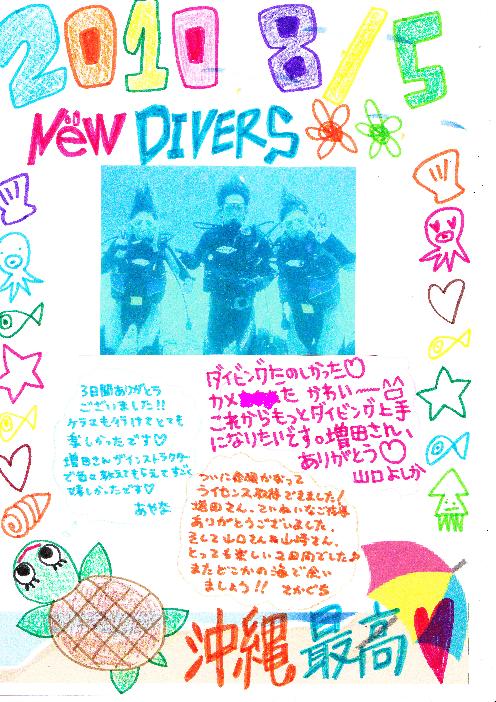 2010 8/5
NEW DIVERS
ダイビングたのしかった♡
カメ た かわいー
これからもっとダイビング上手
になりたいです。増田さん、
ありがとう♡
山口よしか
3日間ありがとう
ございました!!
とても
楽しかったです♡
増田さんがインストラクター
で色々教えてもらえてすごく
嬉しかったです♡
あやな
ついに念願かなって
ライセンス取得できました!
増田さん、ていねいなご指導
ありがとうございました。
そして山口さん&山崎さん、
とっても楽しい3日間でした♪
またどこかの海で会い
ましょう!!
沖縄 最高